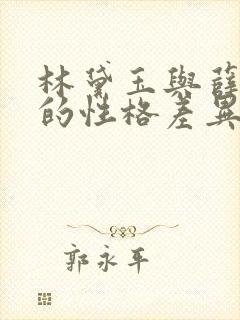 林黛玉與薛
的性格差異
郭永平